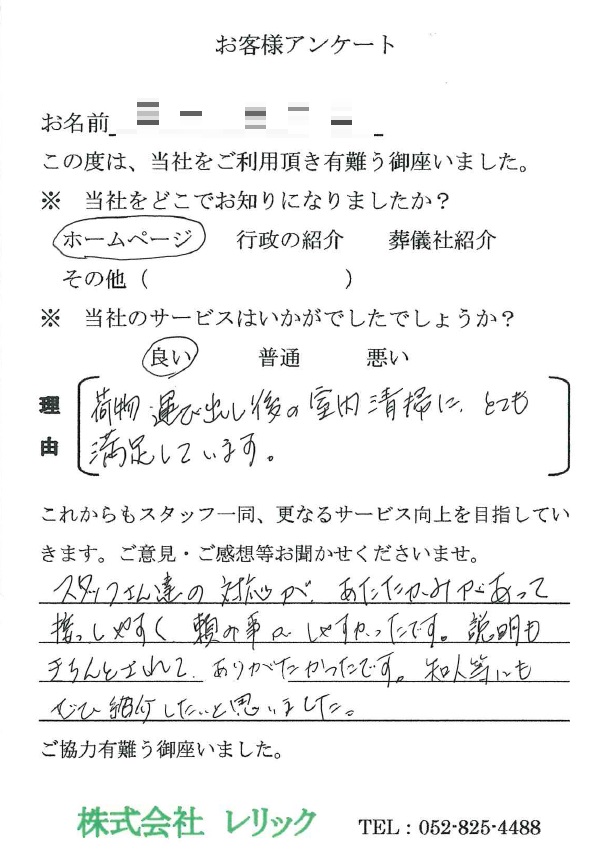 お客様アンケート
お名前
この度は、当社をご利用頂き有難う御座いました。
※　当社をどこでお知りになりましたか？
ホームページ　行政の紹介　葬儀社紹介
その他（　　　　　　　　　）
※　当社のサービスはいかがでしたでしょうか？
良い　普通　悪い
理由
荷物運び出し後の室内清掃に、とても
満足しています。
これからもスタッフ一同、更なるサービス向上を目指してい
きます。ご意見・ご感想等お聞かせくださいませ。
スタッフさん達の対応が、あたたかみがあって
接っしやすく、頼み事がしやすかったです。説明も
きちんとされて、ありがたかったです。知人等にも
ぜひ紹介したいと思いました。
ご協力有難う御座いました。
株式会社 レリック　TEL：052-825-4488